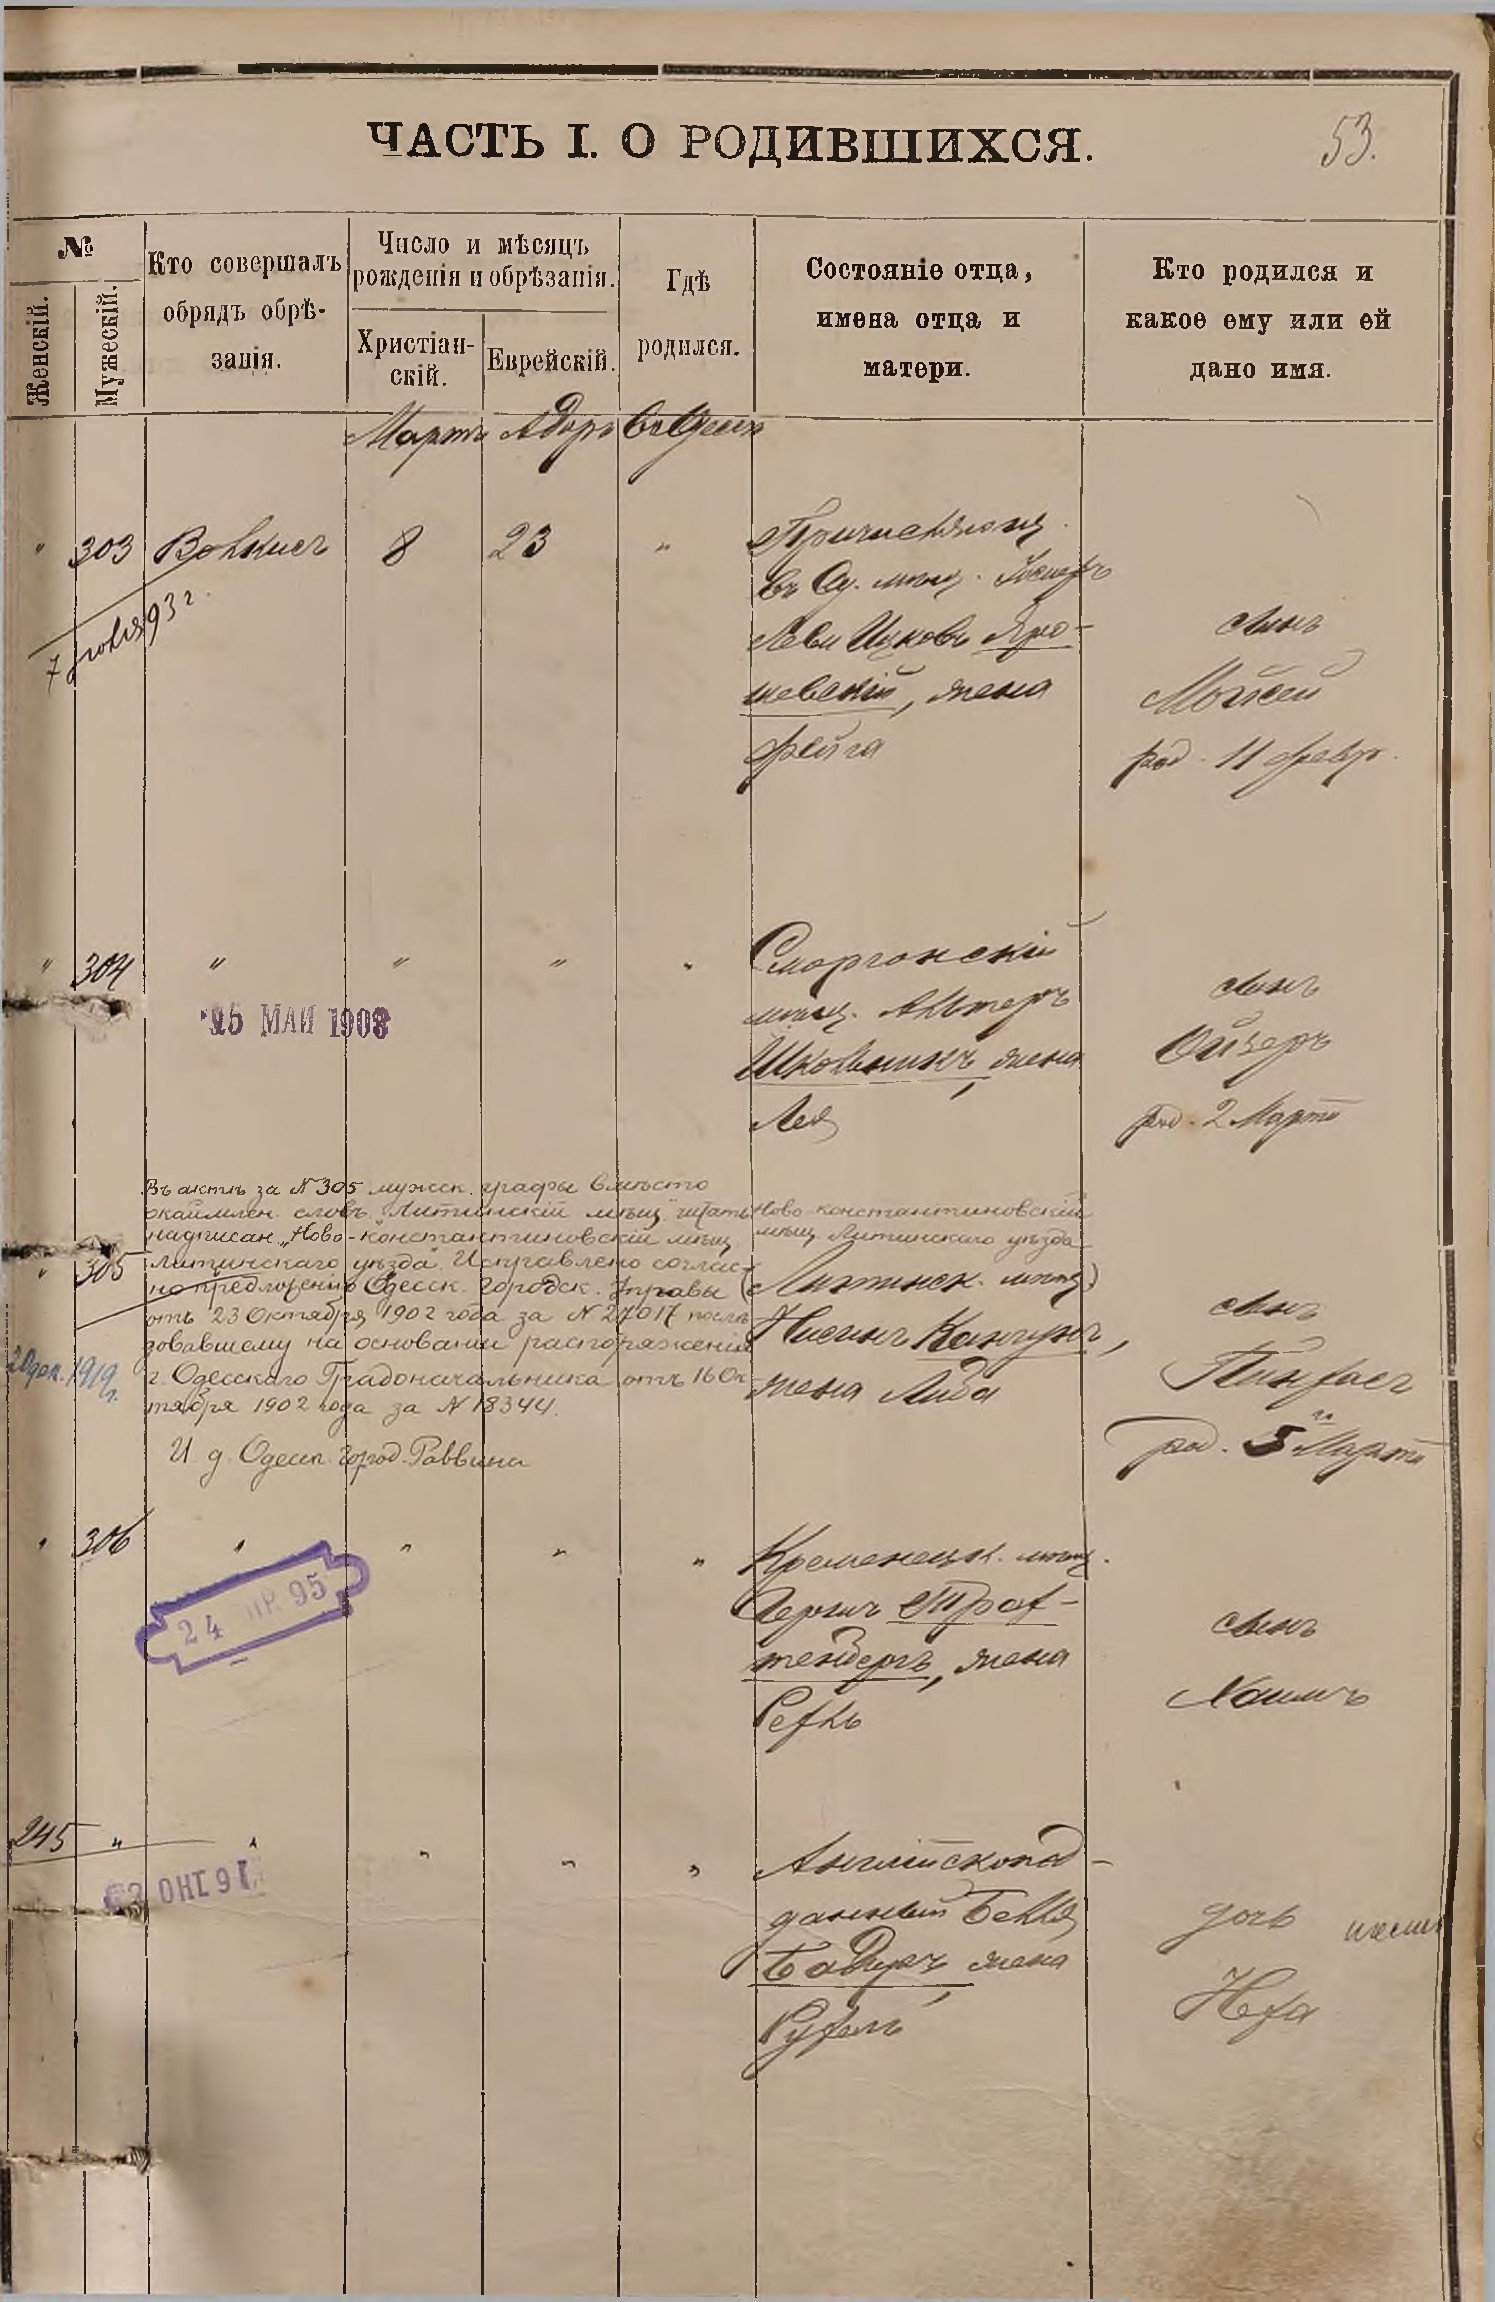 ЧАСТЬ I. О РОДИВШИХСЯ.
53.
№
Женскій.
Мужескій.
Кто совершалъ
обрядъ обрѣ-
занія.
Число и мѣсяцъ
рожденія и обрѣзанія.
Христіан-
скій.
Еврейскій.
Гдѣ
родился.
Состояніе отца,
имена отца и
матери.
Кто родился и
какое ему или ей
дано имя.
Мартъ Адаръ
" 303 8 23 "
7 93 г.
въ Од. мѣщ.
Леви Ицковъ Яро-
шевскій, жена
Фейга
сынъ
Мойсей
род. 11 Февр.
" 304 " " " "
25 МАЙ 1908
Сморгонскій
мѣщ. Альтеръ
Школьникъ, жена
Лея
сынъ
Ойзеръ
род. 2 Марта
Въ актѣ за N 305 мужск. графы вмѣсто
окаймлен. словъ "Литинскій мѣщ." читать
надписан. "Ново-константиновскій мѣщ.
Литинскаго уѣзда". Исправлено соглас-
но предложенію Одесск. Городск. Управы
отъ 23 Октября 1902 года за N 27017 послѣ
довавшему на основаніи распоряженія
г. Одесскаго Градоначальника отъ 16 Ок-
тября 1902 года за N 18344.
И. д. Одесск. город. Раввина
" 305
20 дек. 1919 г.
Ново-константиновскій
мѣщ. Литинскаго уѣзда
(Литинск. мѣщ.)
Нисинъ
жена Люба
сынъ
Пинхасъ
род. 5 Марта
" 306 " " " "
24 95
Кременецк. мѣщ.
Гершъ
тенбергъ, жена
сынъ
Хаимъ
245 " " " " "
Англійскопод-
данный
жена
Рухель
дочь
Неха